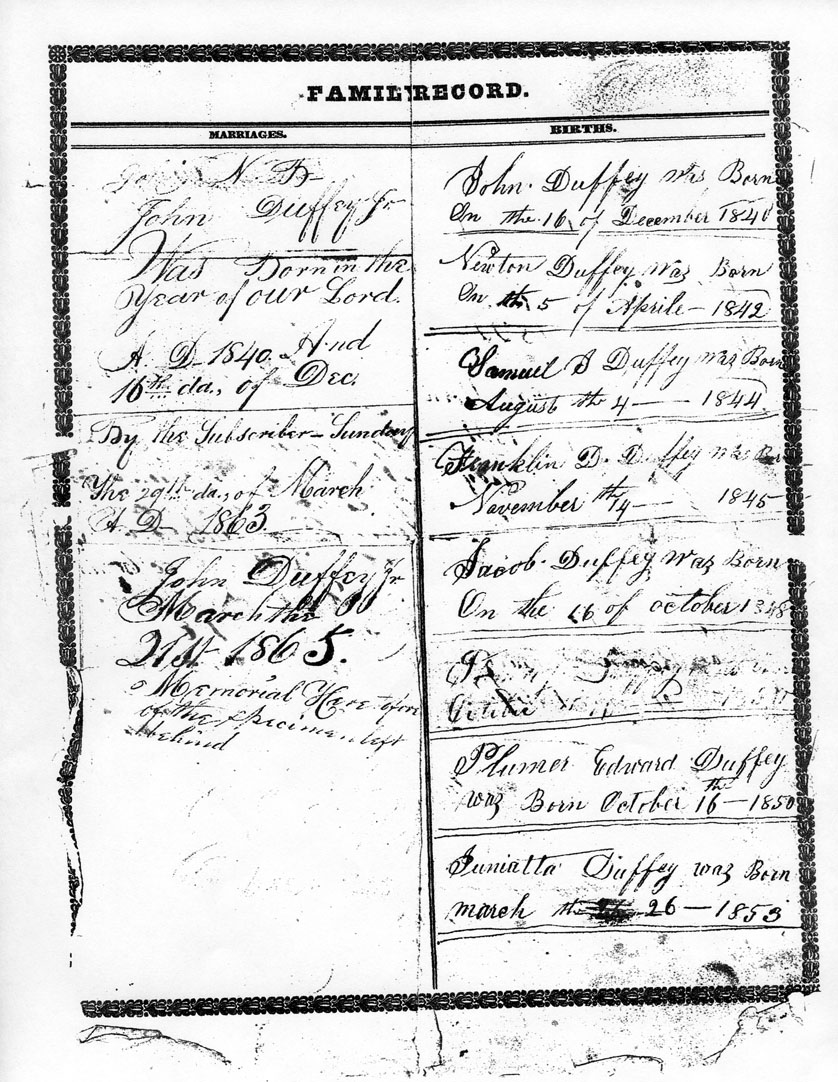 FAMIL RECORD.
MARRIAGES.
John N. D
John Duffey Jr
Was Born in the
Year of our Lord.
A D 1840 And
16th da, of Dec.
By the Subscriber - Sunday
The 29th da, of March
A D 1863.
John Duffey Jr
March the
21st 1865.
Memorial Here
of the specimen left
behind
BIRTHS.
John Duffey was Born
On the 16 of December 1840
Newton Duffey waz Born
On th 5 of Aprile - 1842
Samuel S Duffey was Born
August the 4 - 1844
Franklin D. Duffey was
November th 14 - 1845
Jacob Duffey waz Born
On the 16 of october 1848
October
Plumer Edward Duffey
waz Born October 16th - 1850
Juniatta Duffey waz Born
march the 26 - 1853